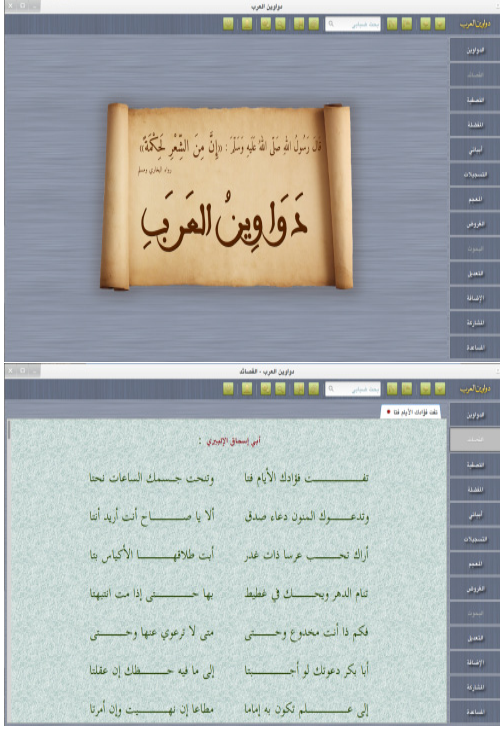 دواوين العرب
دواوين العرب
بحث قياسي
الدواوين
القصائد
التصفية
المفضلة
أبياتي
التسجيلات
المعجم
العروض
البحوث
التعديل
الإضافة
المشاركة
المساعدة
قَالَ رَسُولُ اللهِ صَلَّى اللهُ عَلَيْهِ وَسَلَّمَ : «إِنَّ مِنَ الشِّعْرِ لَحِكْمَةً»
رواه البخاري ومسلم
دَوَاوِينُ العَرَبِ
دواوين العرب - القصائد
دواوين العرب
بحث قياسي
تفت فؤادك الأيام فتا
الدواوين
القصائد
التصفية
المفضلة
أبياتي
التسجيلات
المعجم
العروض
البحوث
التعديل
الإضافة
المشاركة
المساعدة
أبي إسحاق الإلبيري :
تفـــــت فؤادك الأيام فتا وتنحت جـــسمك الساعات نحتا
وتدعـــــوك المنون دعاء صدق ألا يا صـــــاح أنت أريد أنتا
أراك تحـــــب عرسا ذات غدر أبت طلاقهـــــا الأكياس بتا
تنام الدهر ويحـــــك في غطيط بها حـــــتى إذا مت انتبهتا
فكم ذا أنت مخدوع وحـــــتى متى لا ترعوي عنها وحـــــتى
أبا بكر دعوتك لو أجـــــبتا إلى ما فيه حـــــظك إن عقلتا
إلى عـــــلم تكون به إماما مطاعا إن نهـــــيت وإن أمرتا